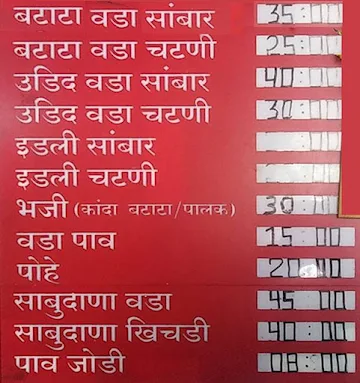 बटाटा वडा सांबार 35:00
बटाटा वडा चटणी 25:00
उडिद वडा सांबार 40:00
उडिद वडा चटणी 30:00
इडली सांबार
इडली चटणी
भजी (कांदा बटाटा/पालक) 30
वडा पाव 15 00
पोहे 20 00
साबुदाणा वडा 45 00
साबुदाणा खिचडी 40:00
पाव जोडी 08:00